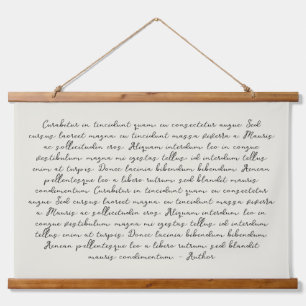 Curabitur in tincidunt quam eu consectetur augue. Sed
cursus laoreet magna eu tincidunt massa viverra a. Mauris
ac sollicitudin eros. Aliquam interdum leo in congue
vestibulum magna mi egestas tellus, id interdum tellus
enim at turpis. Donec lacinia bibendum bibendum. Aenean
pellentesque leo a libero rutrum, sed blandit mauris
condimentum. Curabitur in tincidunt quam eu consectetur
augue. Sed cursus laoreet magna eu tincidunt massa viverra
a. Mauris ac sollicitudin eros. Aliquam interdum leo in
congue vestibulum magna mi egestas tellus, id interdum tellus
enim at turpis. Donec lacinia bibendum bibendum.
Aenean pellentesque leo a libero rutrum, sed blandit
mauris condimentum. - Author